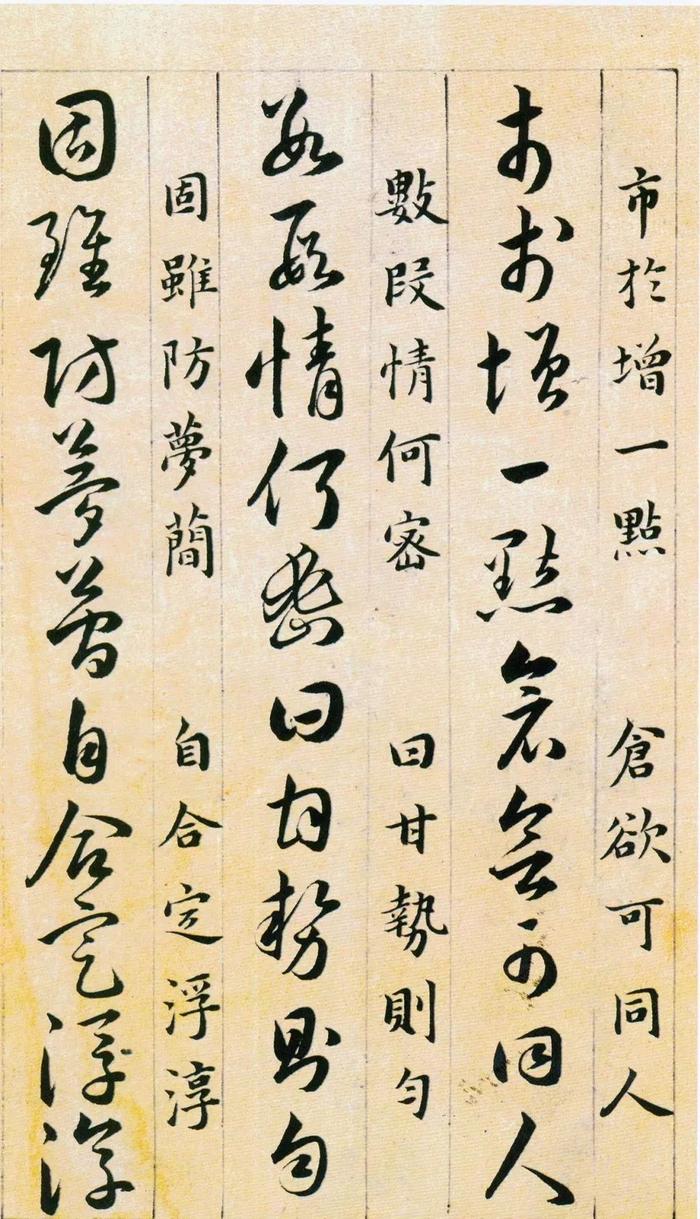 市於增一點　倉欲可同人
市於增一點倉欲可同人
數段情何密　曰甘勢則勻
數段情何密曰甘勢則勻
固雖防夢簡　自合定浮淳
固雖防夢簡自合定浮淳